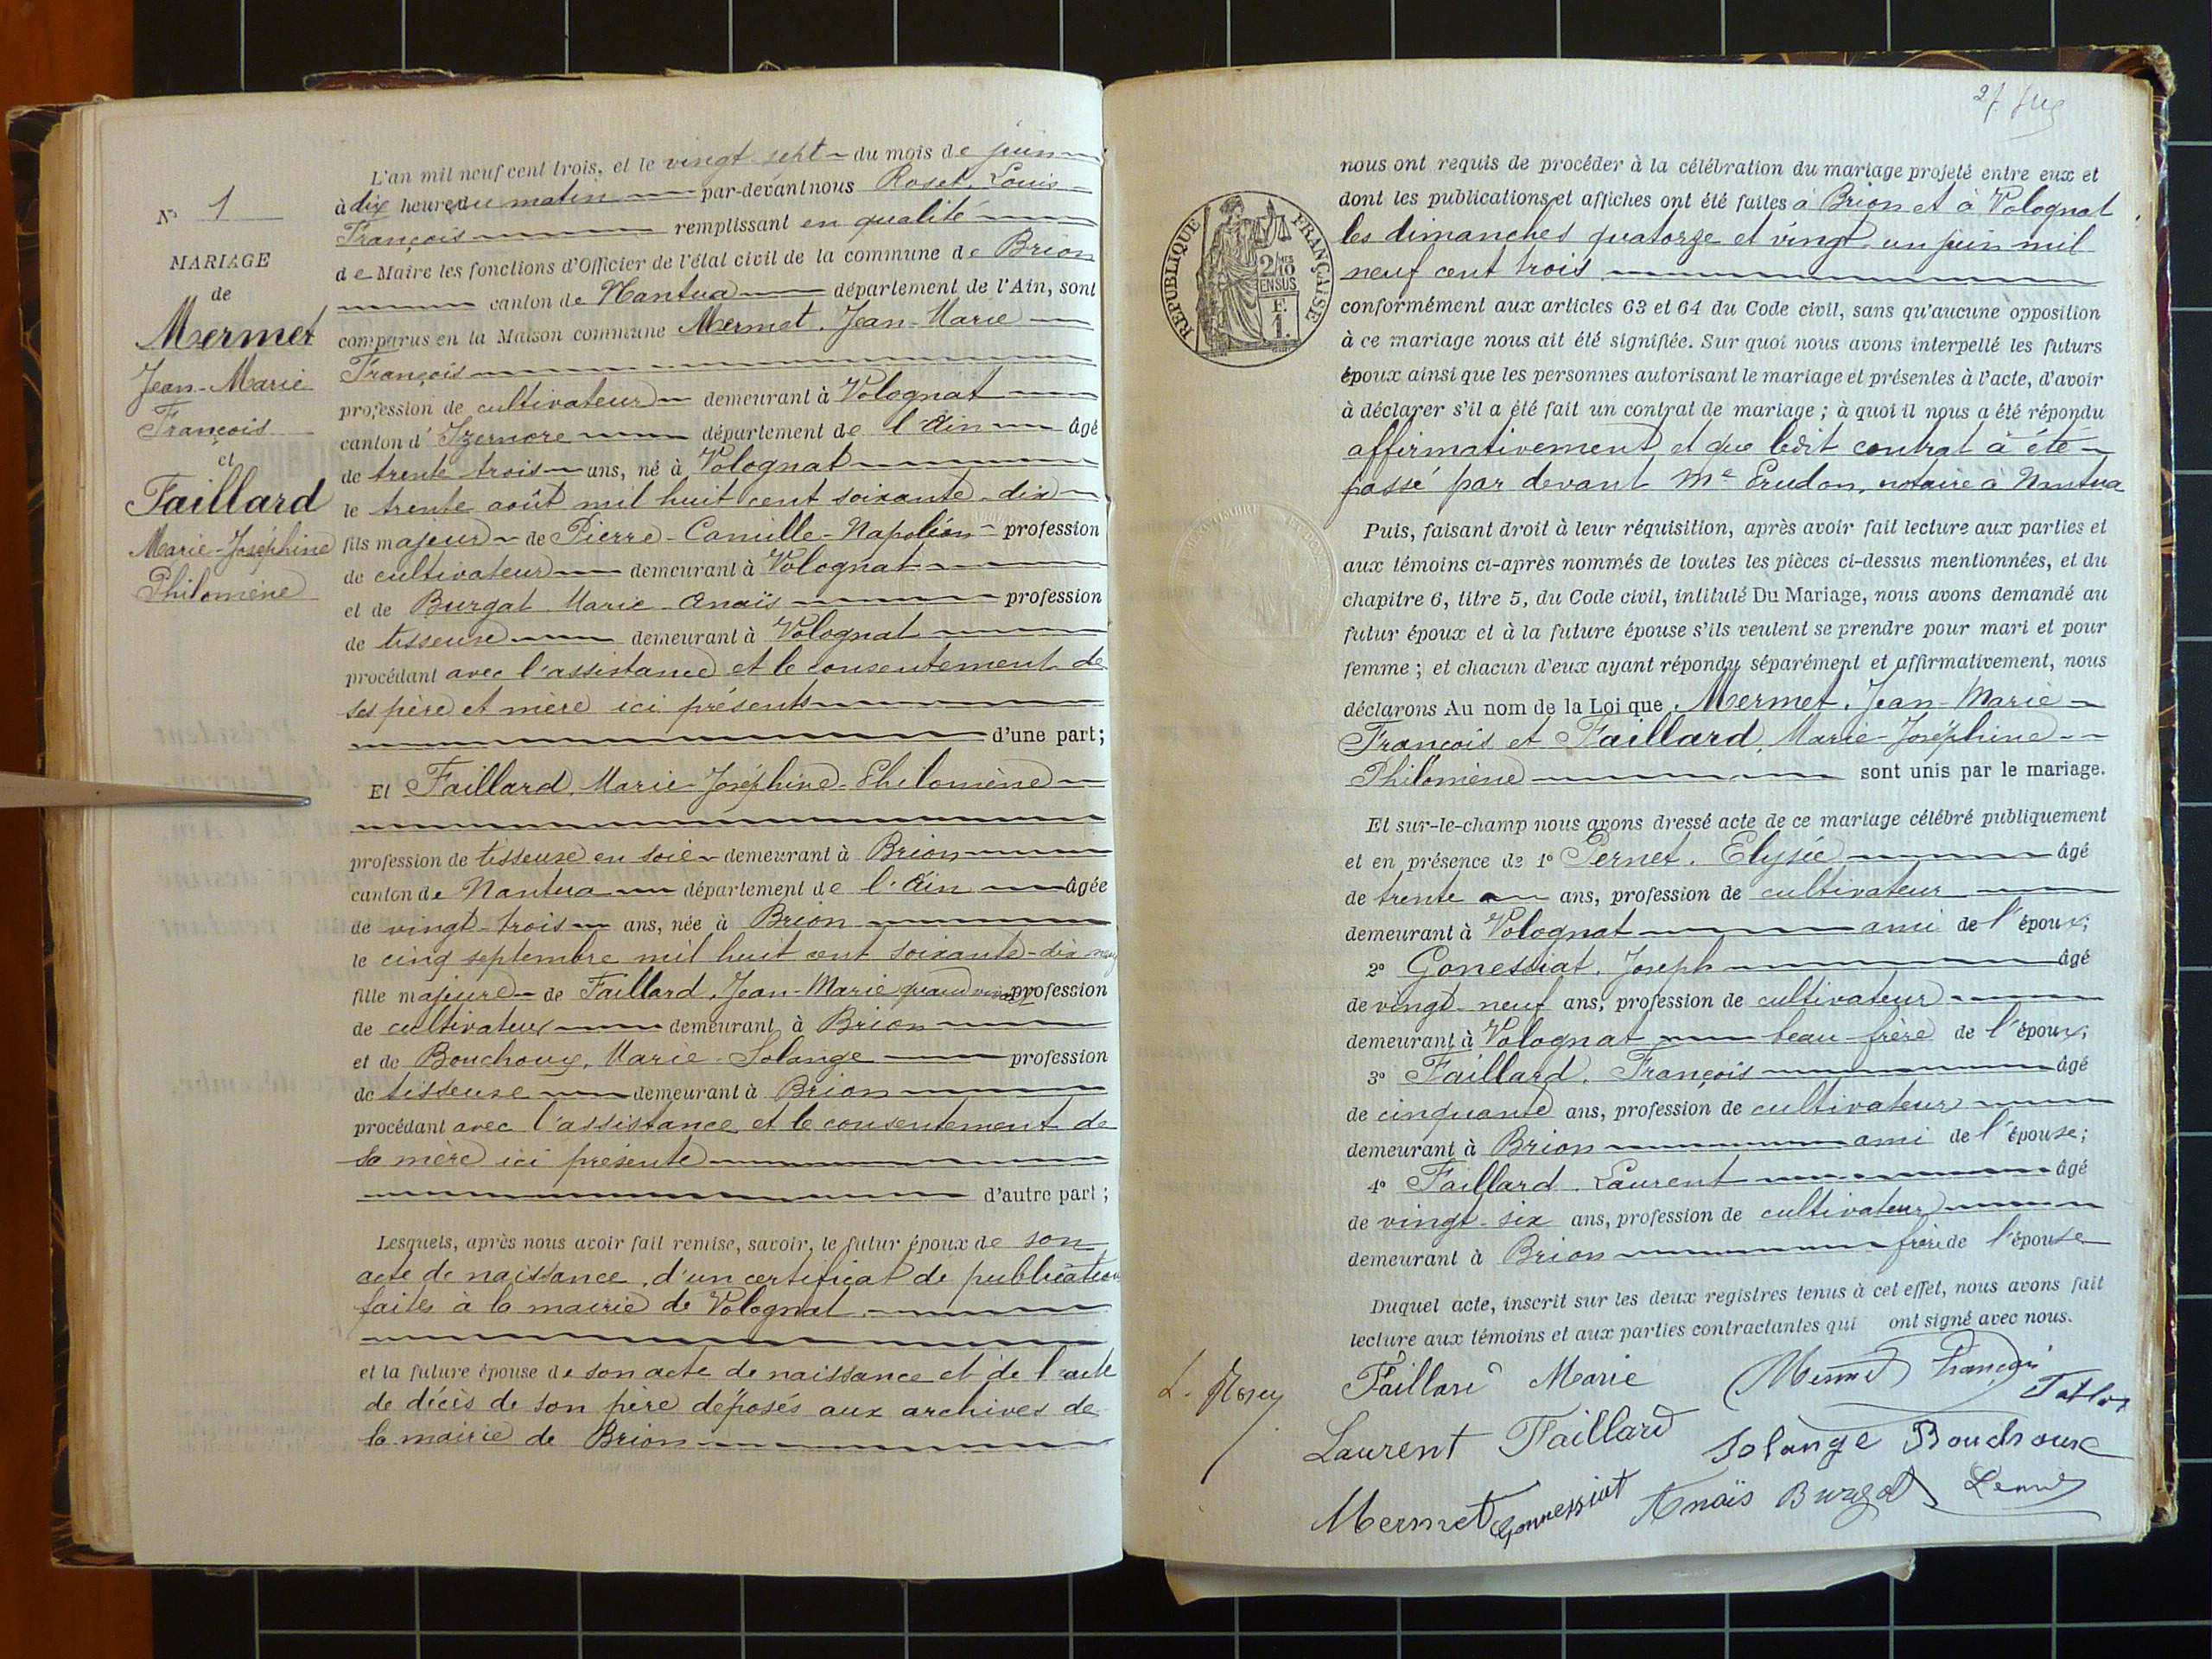 N° 1
MARIAGE
de
Mermet
Jean-Marie
François
et
Faillard
Marie-Joséphine
Philomène
L'an mil neuf cent trois, et le vingt sept du mois de juin
à dix heures du matin par-devant nous Roset, Louis
François remplissant en qualité
de Maire les fonctions d'Officier de l'état civil de la commune de Brion
canton de Nantua département de l'Ain, sont
comparus en la Maison commune Mermet, Jean-Marie
François
profession de cultivateur demeurant à Volognat
canton d'Izernore département de l'Ain âgé
de trente trois ans, né à Volognat
le trente août mil huit cent soixante-dix
fils majeur de Pierre-Camille-Napoléon profession
de cultivateur demeurant à Volognat
et de Burgat Marie Anaïs profession
de tisseuse demeurant à Volognat
procédant avec l'assistance et le consentement de
ses père et mère ici présents
d'une part;
Et Faillard, Marie-Joséphine-Philomène
profession de tisseuse en soie demeurant à Brion
canton de Nantua département de l'Ain âgée
de vingt-trois ans, née à Brion
le cinq septembre mil huit cent soixante-dix neuf
fille majeure de Faillard, Jean-Marie quand vivait profession
de cultivateur demeurant à Brion
et de Bouchoux, Marie-Solange profession
de tisseuse demeurant à Brion
procédant avec l'assistance et le consentement de
sa mère ici présente
d'autre part;
Lesquels, après nous avoir fait remise, savoir, le futur époux de son
acte de naissance, d'un certificat de publications
faites à la mairie de Volognat
et la future épouse de son acte de naissance et de l'acte
de décès de son père déposés aux archives de
la mairie de Brion
27
RÉPUBLIQUE FRANÇAISE
2/10 EN SUS
F. 1.
nous ont requis de procéder à la célébration du mariage projeté entre eux et
dont les publications et affiches ont été faites à Brion et à Volognat
les dimanches quatorze et vingt-un juin mil
neuf cent trois
conformément aux articles 63 et 64 du Code civil, sans qu'aucune opposition
à ce mariage nous ait été signifiée. Sur quoi nous avons interpellé les futurs
époux ainsi que les personnes autorisant le mariage et présentes à l'acte, d'avoir
à déclarer s'il a été fait un contrat de mariage; à quoi il nous a été répondu
affirmativement et que ledit contrat à été
passé par devant Me Erudon, notaire à Nantua
Puis, faisant droit à leur réquisition, après avoir fait lecture aux parties et
aux témoins ci-après nommés de toutes les pièces ci-dessus mentionnées, et du
chapitre 6, titre 5, du Code civil, intitulé Du Mariage, nous avons demandé au
futur époux et à la future épouse s'ils veulent se prendre pour mari et pour
femme; et chacun d'eux ayant répondu séparément et affirmativement, nous
déclarons Au nom de la Loi que Mermet, Jean-Marie
François et Faillard, Marie-Joséphine
Philomène sont unis par le mariage.
Et sur-le-champ nous avons dressé acte de ce mariage célébré publiquement
et en présence de 1° Pernet, Elysée âgé
de trente ans, profession de cultivateur
demeurant à Volognat ami de l'époux;
2° Gonessiat, Joseph âgé
de vingt-neuf ans, profession de cultivateur
demeurant à Volognat beau-frère de l'époux;
3° Faillard, François âgé
de cinquante ans, profession de cultivateur
demeurant à Brion ami de l'épouse;
4° Faillard, Laurent âgé
de vingt-six ans, profession de cultivateur
demeurant à Brion frère de l'épouse
Duquel acte, inscrit sur les deux registres tenus à cet effet, nous avons fait
lecture aux témoins et aux parties contractantes qui ont signé avec nous.
Faillard Marie Mermet François
Laurent Faillard Solange Bouchoux
Mermet Gonnessiat Anaïs Burgat